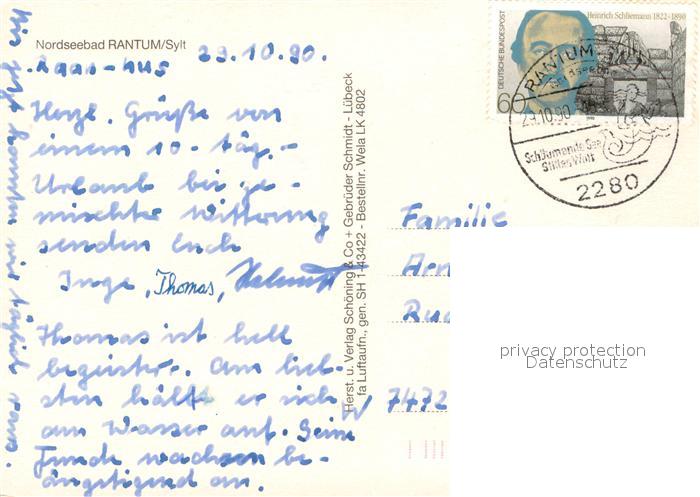 Nordseebad RANTUM/Sylt
29.10.90.
Herzl. Grüße von
einem 10-täg.-
Urlaub bei ge-
mischter Witterung
senden Euch
Inge, Thomas, Helmut
Thomas ist hell
begeistert. Am lieb-
sten hält er sich
am Wasser auf. Seine
Funde wachsen be-
ängstigend an.
Bis jetzt konnten wir täglich raus.
Herst. u. Verlag Schöning & Co + Gebrüder Schmidt - Lübeck
fa Luftaufn., gen. SH 1-43422 - Bestellnr. Wela LK 4802
DEUTSCHE BUNDESPOST
Heinrich Schliemann 1822-1890
60
RANTUM
Nordseebad
29.10.90
Schäumende See
Stilles Watt
2280
Familie
Arn
Ru
W 7472
privacy protection
Datenschutz